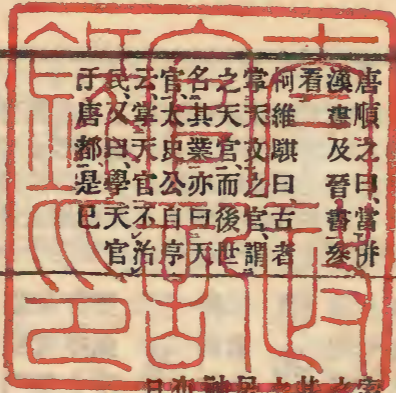 唐順之曰當并
漢書及晉書叅
看
柯維騏曰古者
掌天文之官謂
之天官而後世
名其業亦曰天
官太史公自序
云掌天官不治
民又曰學天官
于唐都是已